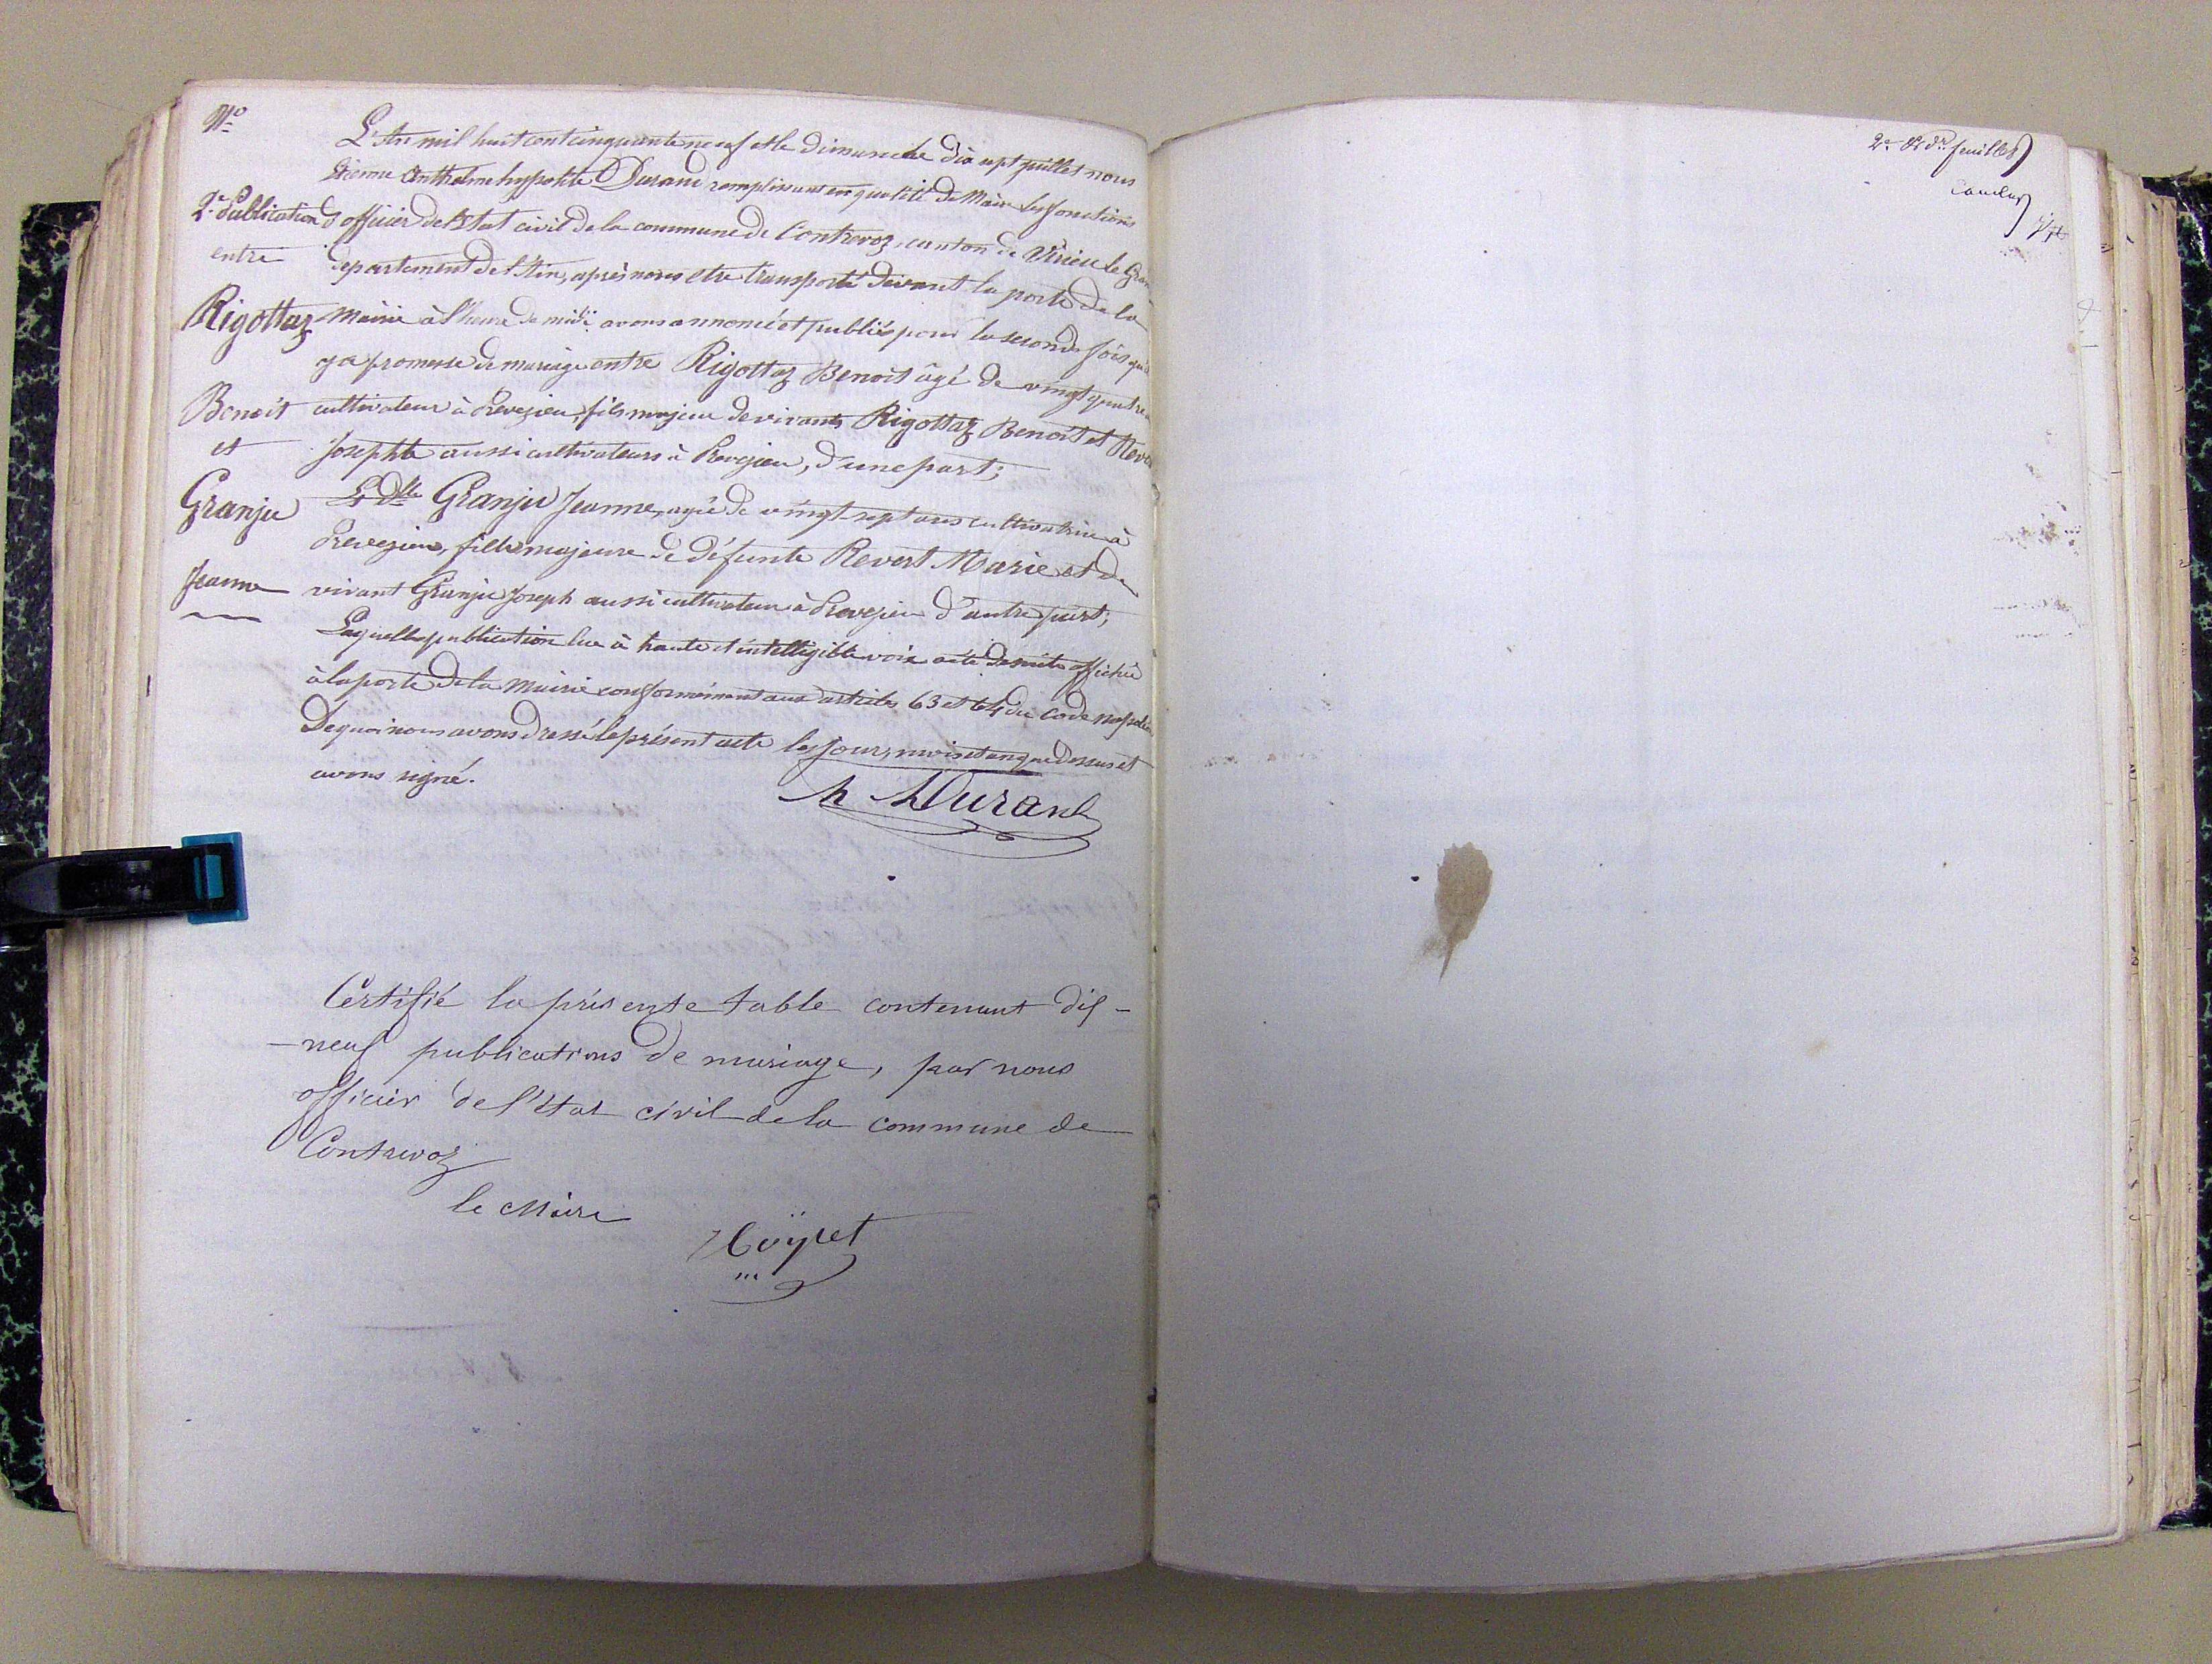 No
L'An mil huit cent cinquante neuf et le dimanche dix sept juillet nous
Etienne Anthelme hypolite Durand remplissant en qualité de Maire les fonctions
2e Publication d'officier de l'Etat civil de la commune de Contrevoz, canton de Virieu le Gran
entre département de l'Ain, après nous etre transporté devant la porte de la
Rigottaz Mairie à l'heure de midi avons annoncé et publié pour la seconde fois qu'il
y a promesse de mariage entre Rigottaz Benoit âgé de vingt quatre
Benoit cultivateur à Prevezieu, fils majeur de vivants Rigottaz Benoit et Reve
et Josephte aussi cultivateurs à Prevezieu, d'une part;
Granju Et Dlle Granju Jeanne, agée de vingt-sept ans cultivatrice à
Prevezieu, fille majeure de défunte Revert Marie et de
Jeanne vivant Granju Joseph aussi cultivateur à Prevezieu d'autre part;
Laquelle publication lue à haute et intelligible voix a été de suite affichée
à la porte de la Mairie conformément aux articles 63 et 64 du code napoléon
De quoi nous avons dressé le présent acte les jour, mois et an que dessus et
avons signé.
h Durand
Certifié la présente table contenant dix-
-neuf publications de mariage, par nous
officier de l'état civil de la commune de
Contrevoz
le Maire
2e et dr feuillet